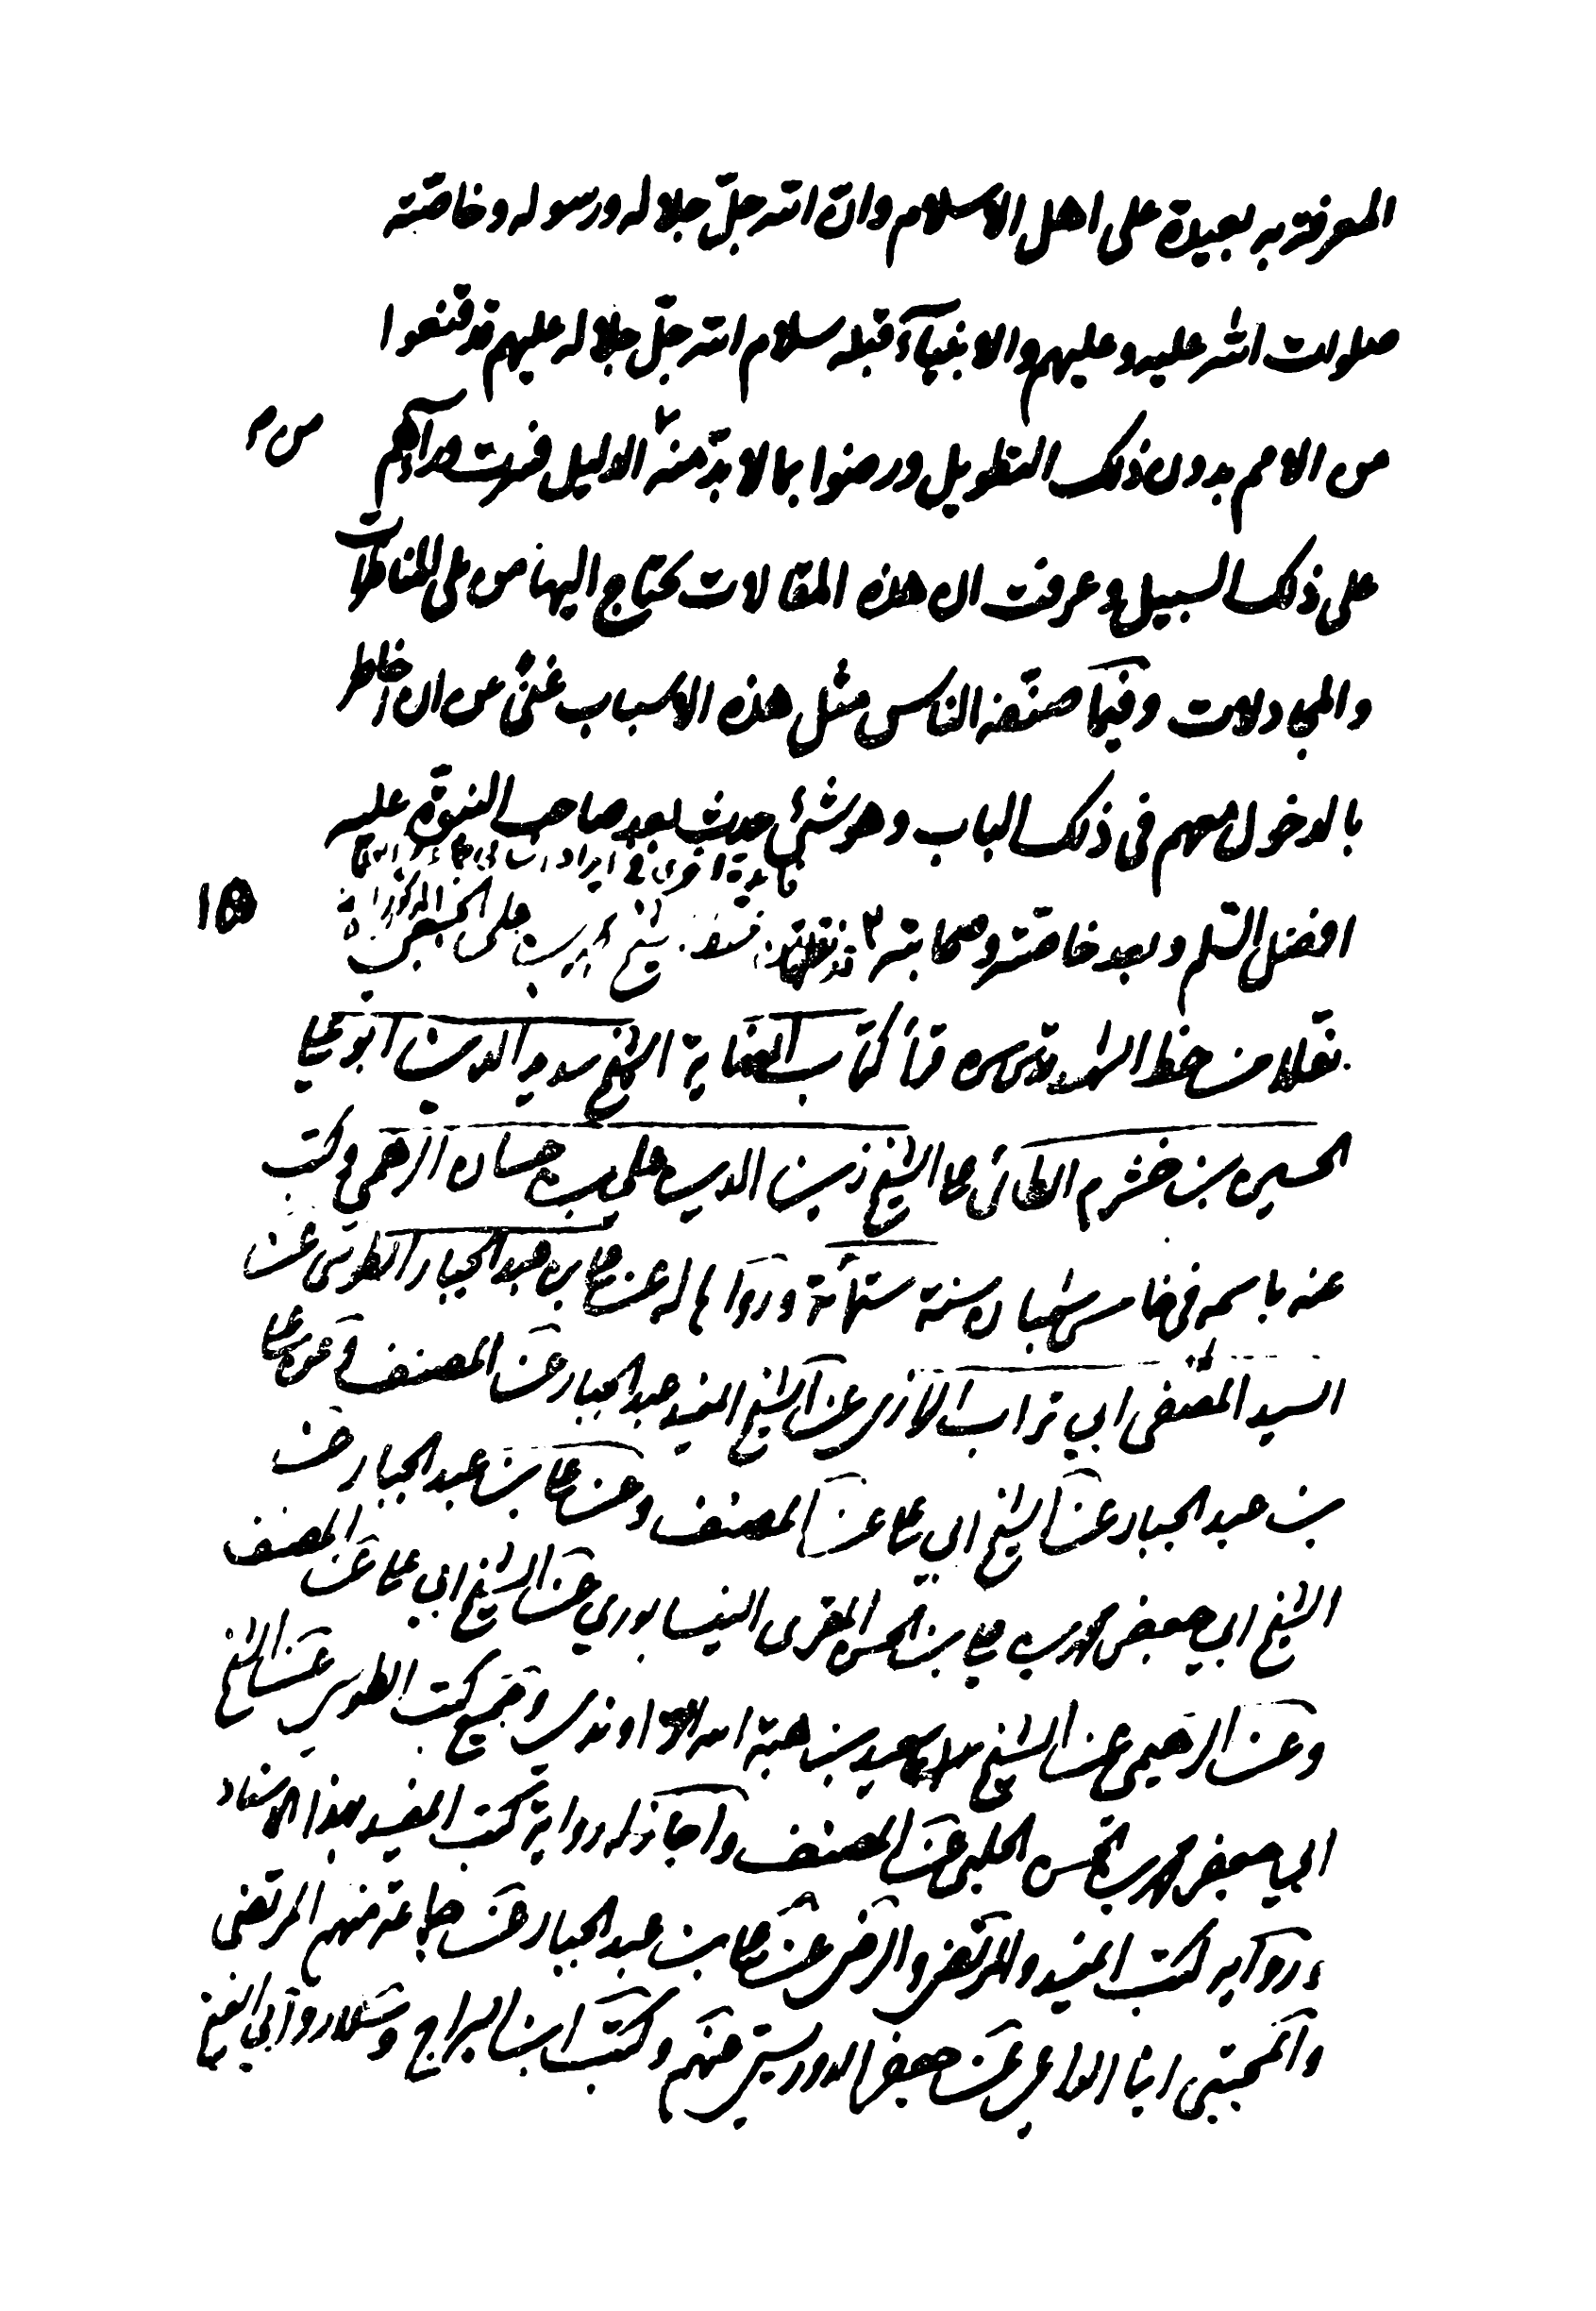 المعرفة به بعيدة على اهل الاسلام وان الله جل جلاله ورسوله وخاصته
صلوات الله عليه وعليهم والانبيآء قبله سلام الله جل جلاله عليهم قد قنعوا
من الامم بدون ذلك التطويل ورضوا بما لا بد منه الدليل فسرت ورآءهم
على ذلك السبيل وعرفت ان هذه المقالات يحتاج اليها من يلى المناظرات
والمجادلات وفيما صنفه الناس مثل هذه الاسباب غنى عن ان اخاطر
بالدخول معهم فى ذلك الباب وهو شئ حدث بعد صاحب النبوة عليه
فائدة اخرى فى ايراد
افضل السلم وبعد خاصته وصحابته
الشيخ محمد بن على الجبعى
نقلا من خط الشهيد قدس سره قرأ كتاب النهاية الشيخ سديد الدين ابو على
الحسين بن خشرم الطائى على الشيخ زين الدين على بن حسان الرهمى وكتب
عنه باسمه فى خامس شعبان سنة ستمائة ورواها له عن على بن عبد الجبار الطوسى عن
السيد المصطفى ابي تراب الرازى عن الشيخ المفيد عبد الجبار عن المصنف وعن على
بن عبد الجبار عن الشيخ ابي على عن المصنف وعن على بن عبد الجبار عن
الشيخ ابي جعفر محمد بن على بن الحسن المقرى النيسابوري عن الشيخ ابي على عن المصنف
وعن الرهمى عن الشيخ سعيد بن هبة الله الراوندى وجميع كتب الطوسى عن الشيخ
ابي جعفر محمد بن الحسن الحلبى عن المصنف واجاز له رواية كتب المفيد بهذا الاسناد
ورواية كتب المفيد والمرتضى والرضى عن على بن عبد الجبار عن جماعة منهم المرتضى
والمجتبى ابنا الداعى عن جعفر الدوريستى عنهم وكتب ابن البراج وسلار وابي الفتح